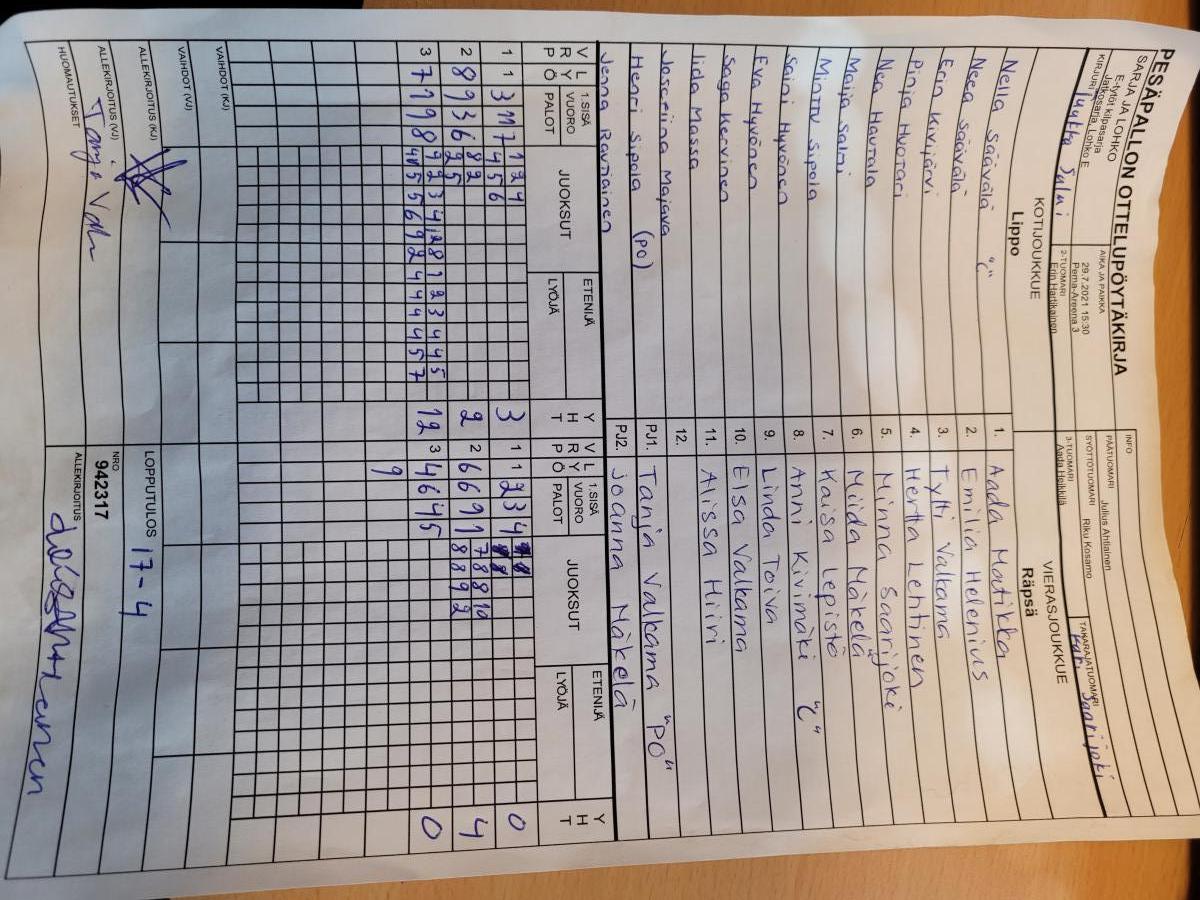 PESÄPALLON OTTELUPÖYTÄKIRJA
SARJA JA LOHKO
E-tytöt kilpasarja
Jatkosarja Lohko E
AIKA JA PAIKKA
29.7.2021 15:30
Pema-Areena 3
INFO
PÄÄTUOMARI Julius Ahtiainen
SYÖTTÖTUOMARI Riku Kosamo
TAKARAJATUOMARI Kari Saarijoki
KIRJURI Jutta Salmi
2-TUOMARI
Erin Hartikainen
3-TUOMARI
Aada Heikkilä
KOTIJOUKKUE
Lippo
VIERASJOUKKUE
Räpsä
Nella Säävälä "C"
1. Aada Matikka
Neea Säävälä
2. Emilia Helenius
Erin Kivijärvi
3. Tytti Valkama
Pinja Huovari
4. Hertta Lehtinen
Nea Haurala
5. Minna Saarijoki
Maija Salmi
6. Miida Mäkelä
Minttu Sipola
7. Kaisa Lepistö
Saini Hyvönen
8. Anni Kivimäki "C"
Eva Hyvönen
9. Linda Toiva
Saga Kervinen
10. Elsa Valkama
Iida Massa
11. Alissa Hiiri
Josefiina Majava
12.
Henri Sipola (PO)
PJ1. Tanja Valkama "PO"
Jenna Rautiainen
PJ2. Joanna Mäkelä
V R P
L Y Ö
1.SISÄ
VUORO
PALOT
JUOKSUT
ETENIJÄ
LYÖJÄ
Y H T
V R P
L Y Ö
1.SISÄ
VUORO
PALOT
JUOKSUT
ETENIJÄ
LYÖJÄ
Y H T
1 1 3 11 7
1 2 4
4 5 6
3
1 1 2 3 4
0
2 8 9 3 6
8 2
2 5
2
2 6 6 9 1
7 8 8 10
8 8 9 2
4
3 7 1 9 8
12
3 4 6 4 5
9
0
VAIHDOT (KJ)
VAIHDOT (VJ)
ALLEKIRJOITUS (KJ)
LOPPUTULOS 17-4
ALLEKIRJOITUS (VJ)
NRO
942317
HUOMAUTUKSET
ALLEKIRJOITUS